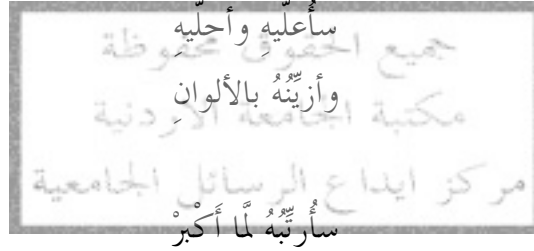 سأُعلّيهِ وأحلّيهِ
جميع الحقوق محفوظة
وأزيِّنُهُ بالألوانِ
مكتبة الجامعة الاردنية
مركز ايداع الرسائل الجامعية
سأُرتِّبُهُ لَّما أَكْبرْ